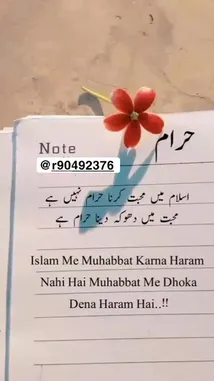 حرام
Note
@r90492376
اسلام میں محبت کرنا حرام نہیں ہے
محبت میں دھوکہ دینا حرام ہے
Islam Me Muhabbat Karna Haram
Nahi Hai Muhabbat Me Dhoka
Dena Haram Hai..!!